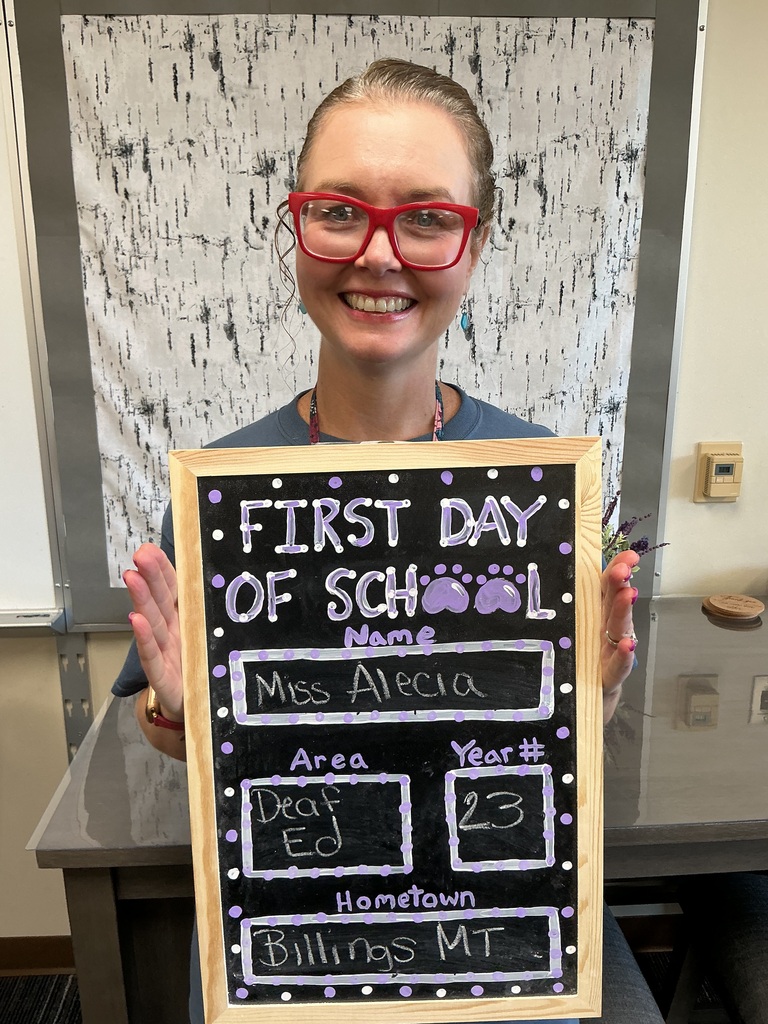 FIRST DAY
OF SCHOOL
Name
Miss Alecia
Area Year #
Deaf 23
Ed
Hometown
Billings MT